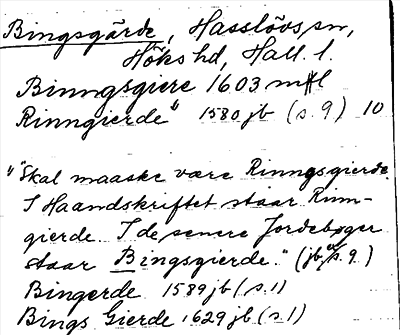 Bingsgärde, Hasslövs sn,
Höks hd, Hall. l.
Binngsgiere 1603 mtl
Rinngierde" 1580 jb (s. 9) 10
"“Skal maaske være Rinngsgierde.
I Haandskriftet staar Rinn-
gierde. I de senere Jordebøger
staar Bingsgierde." (jb, s. 9.)
Bingerde 1589 jb (s. 1)
Bings Gierde 1629 jb (s. 1)